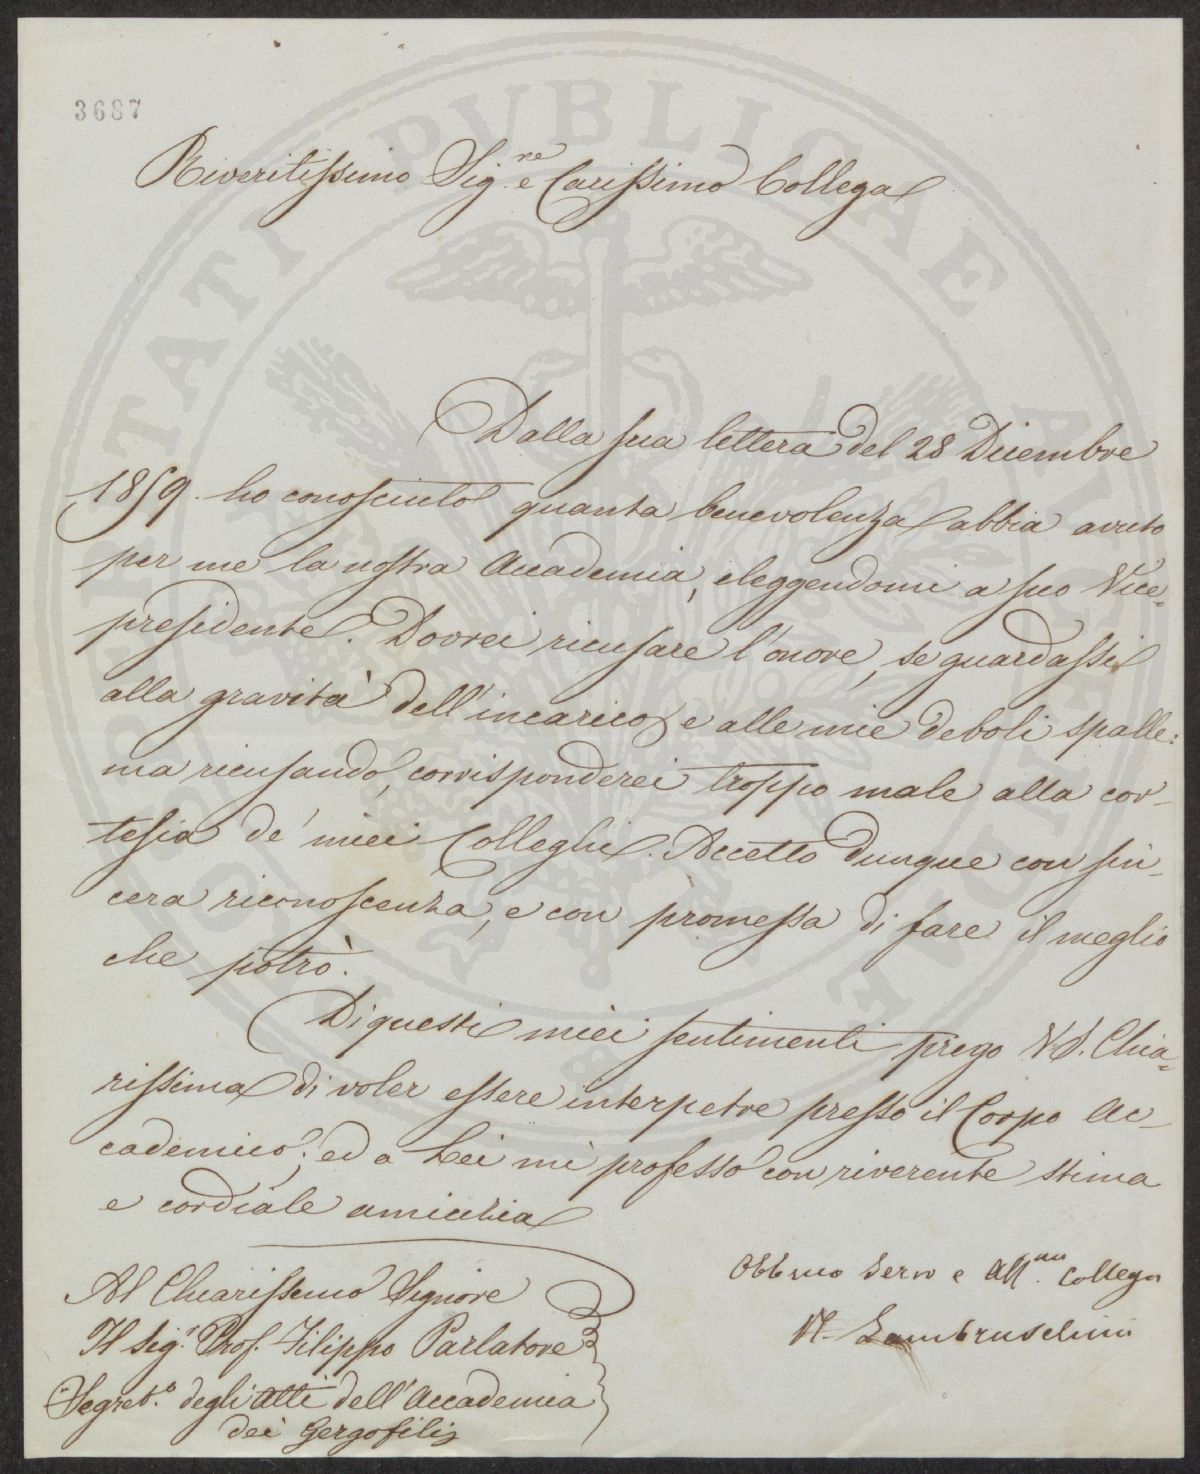 3687
Riveritissimo Sig.re e Carissimo Collega
Dalla sua lettera del 28 Dicembre
1859. ho conosciuto quanta benevolenza abbia avuto
per me la nostra Accademia, eleggendomi a suo Vice-
presidente. Dovrei ricusare l'onore, se guardassi
alla gravità dell'incarico, e alle mie deboli spalle:
ma ricusando, corrisponderei troppo male alla cor-
tesia de' miei Colleghi. Accetto dunque con sin-
cera riconoscenza, e con promessa di fare il meglio
che potrò.
Di questi miei sentimenti prego V.S. Chia-
rissima di voler essere interpetre presso il Corpo Ac-
cademico; ed a Lei mi professo con riverente stima
e cordiale amicizia
Obbmo Servo e Aff.mo Collega
R. Lambruschini
Al Chiarissimo Signore
Il Sig.r Prof. Filippo Parlatore
Segret.o degli Atti dell'Accademia
dei Gergofili
PROSPERITATI PUBLICAE AUGENDAE